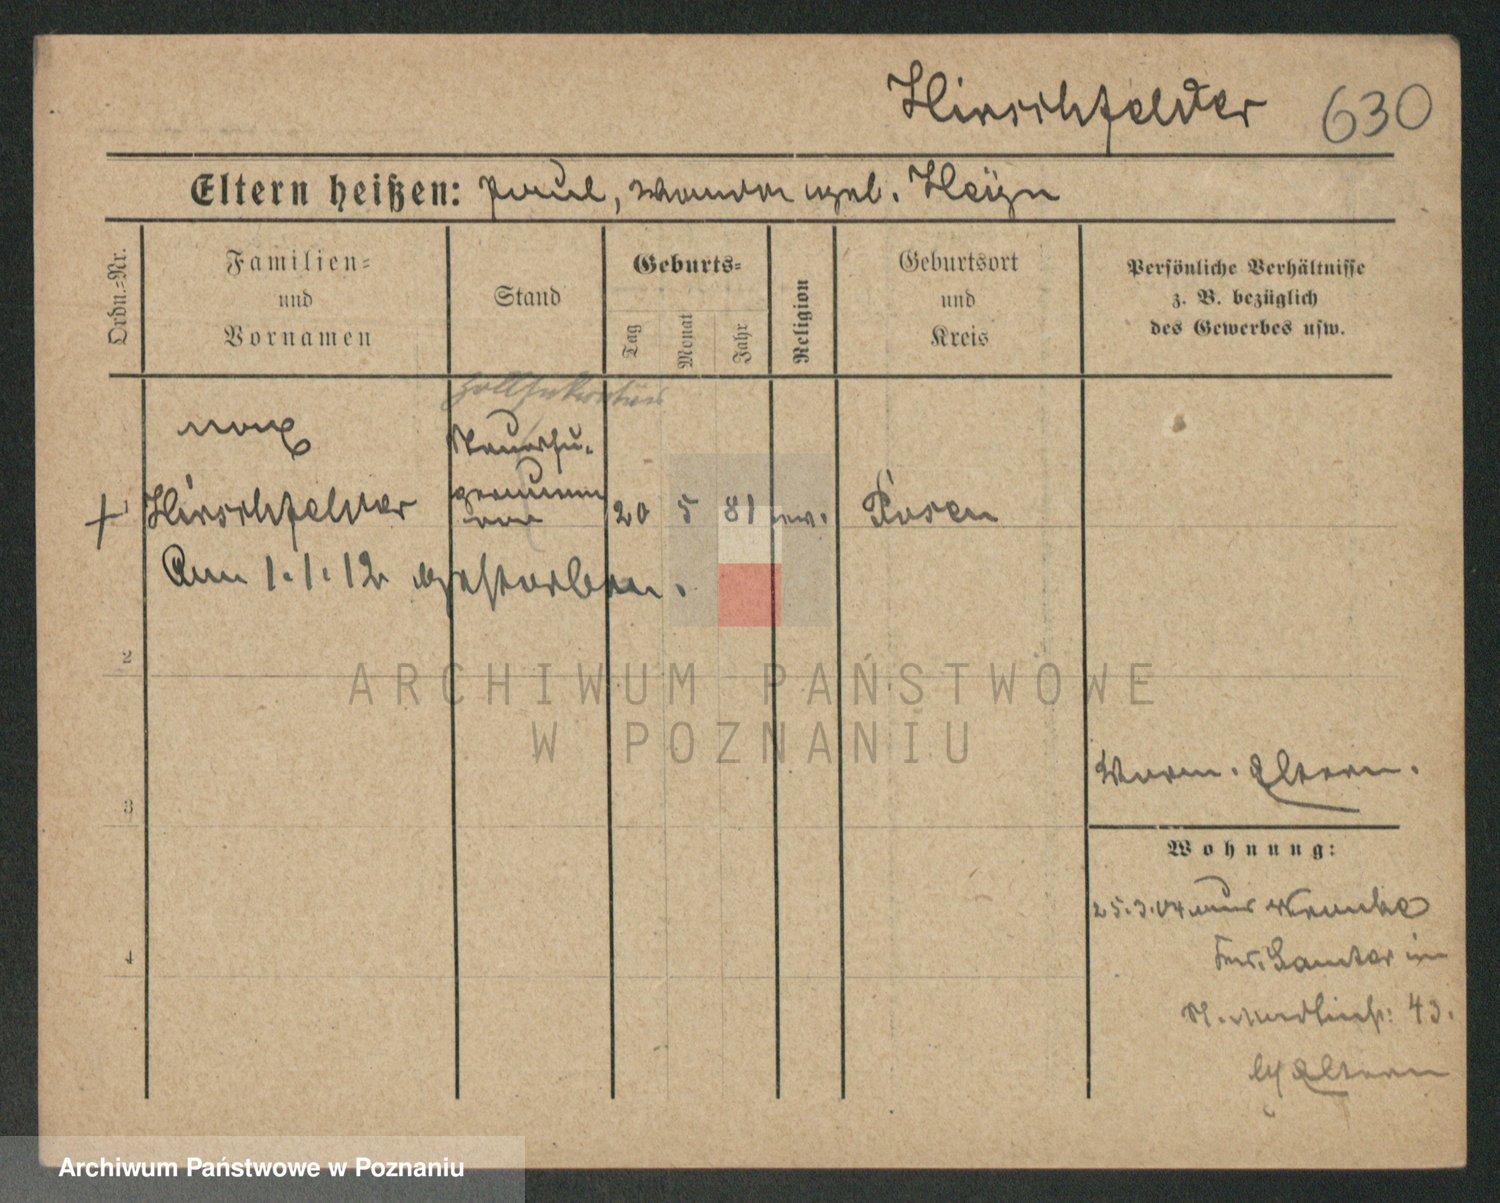 Hirschfelder 630
Eltern heißen: Paul, Wanda geb. Heyn
Ordn.=Nr.
Familien=
und
Vornamen
Stand
Geburts=
Tag
Monat
Jahr
Religion
Geburtsort
und
Kreis
Persönliche Verhältnisse
z. B. bezüglich
des Gewerbes usw.
Max
Hirschfelder
20 5 81 ev. Posen
Am 1.1.12 gestorben.
2
3
4
Eltern.
Wohnung:
25.3.04 aus
Samter in
43.
Eltern
ARCHIWUM PAŃSTWOWE
W POZNANIU
Archiwum Państwowe w Poznaniu